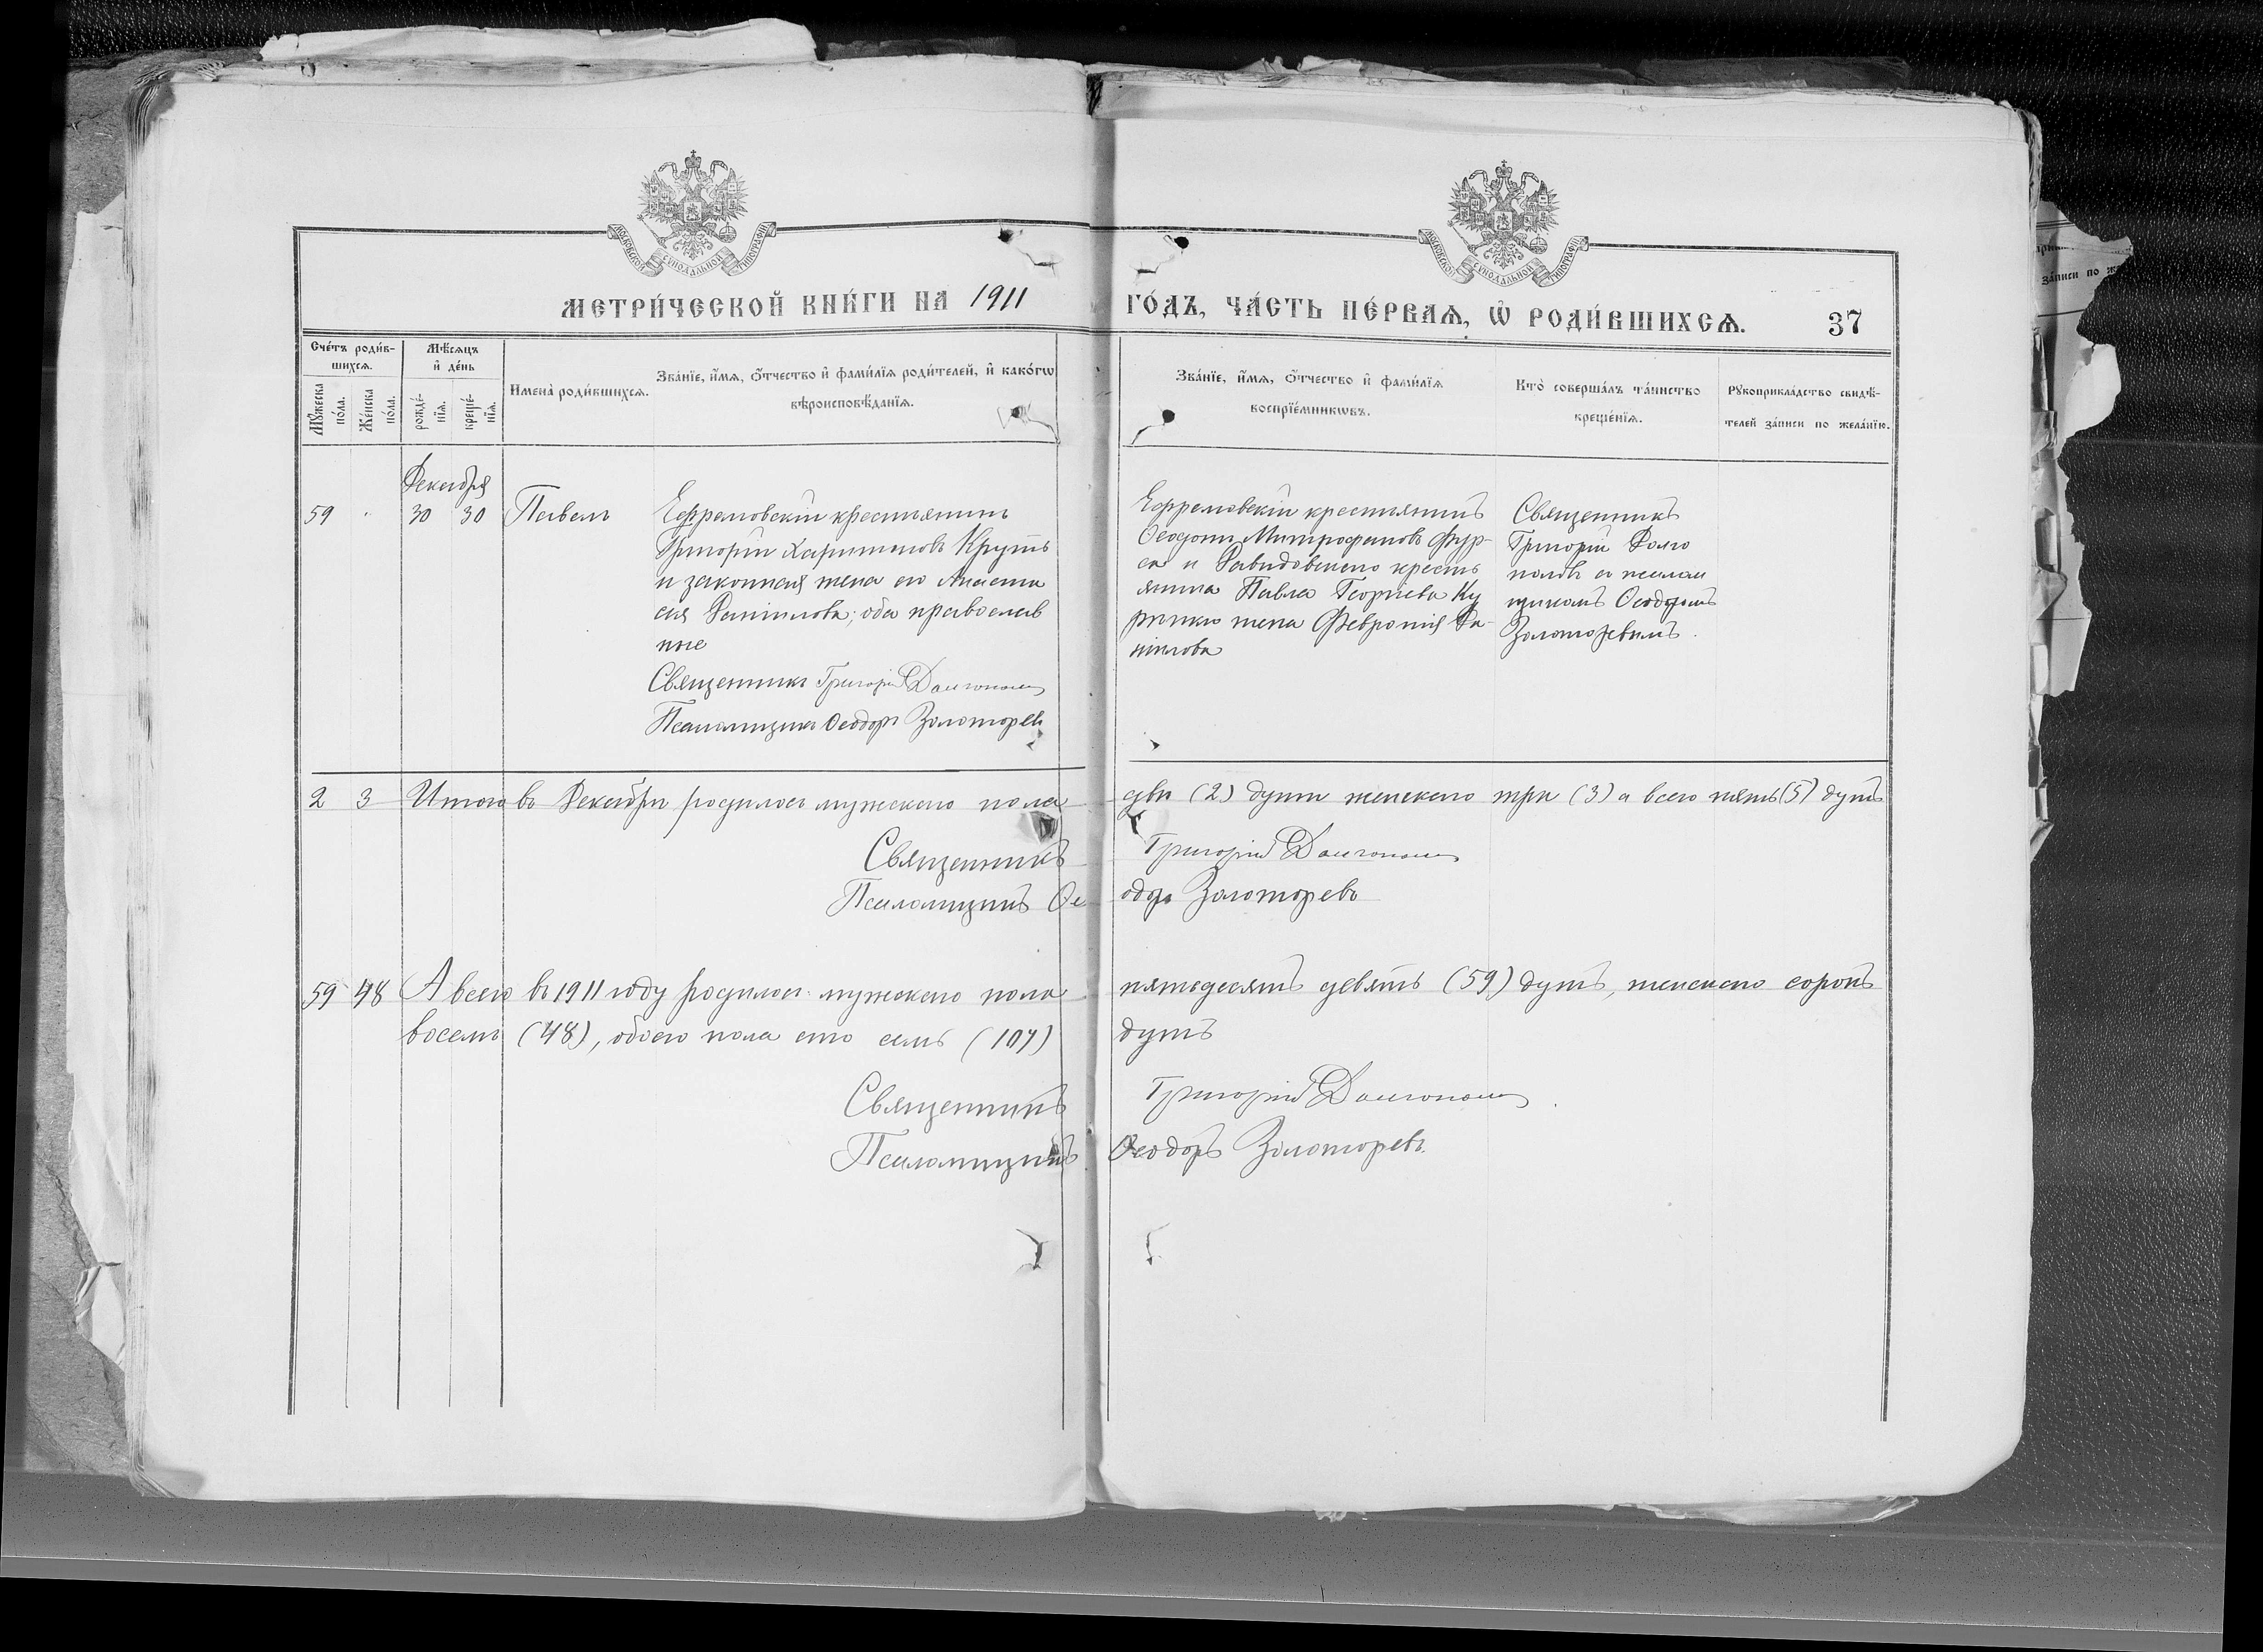 МОСКОВСКОЙ СѴНОДАЛЬНОЙ ТИПОГРАФІИ
МОСКОВСКОЙ СѴНОДАЛЬНОЙ ТИПОГРАФІИ
МЕТРИ́ЧЕСКОЙ КНИ́ГИ НА 1911 ГО́ДЪ, ЧА́СТЬ ПЕ́РВАѦ, Ѡ҆ РОДИ́ВШИХСѦ. 37
Сче́тъ роди́в-
шихсѧ.
Мꙋ́жеска по́ла.
Же́нска по́ла.
Мѣ́сѧцъ
и҆ де́нь
рожде́-нїѧ.
креще́-нїѧ.
Имена̀ роди́вшихсѧ.
Зва́нїе, и҆́мѧ, ѻ҆́тчество и҆ фами́лїѧ роди́телей, и҆ како́гѡ
вѣроисповѣ́данїѧ.
Зва́нїе, и҆́мѧ, ѻ҆́тчество и҆ фами́лїѧ
воспрїе́мникѡвъ.
Кто̀ соверша́лъ та́инство
креще́нїѧ.
Рꙋкоприкла́дство свидѣ́-
телей за́писи по жела́нїю.
Декабря
59 30 30 Павелъ
Ефремовскій крестьянинъ
Григорій Харитоновъ Крутъ
и законная жена его Анаста
сія Даніилова; оба православ
ные
Священникъ Григорій Долгополовъ
Псаломщикъ Ѳеодоръ Золоторевъ
Ефремовскій крестьянинъ
Ѳеодотъ Митрофановъ Фур-
са и Давидовскаго кресть
янина Павла Георгіева Ку
жена Февронія Да-
ніилова
Священникъ
Григорій Долго
половъ съ псалом
щикомъ Ѳеодоромъ
Золоторевымъ.
2 3 Итого въ Декабрѣ родилось мужескаго пола двѣ (2) души женскаго три (3) а всего пять (5) душъ
Священникъ Григорій Долгополовъ
Псаломщикъ Ѳеодоръ Золоторевъ
59 48 А всего въ 1911 году родилось мужескаго пола пятьдесятъ девять (59) душъ, женскаго сорокъ
восемь (48), обоего пола сто семь (107) душъ
Священникъ Григорій Долгополовъ
Псаломщикъ Ѳеодоръ Золоторевъ.